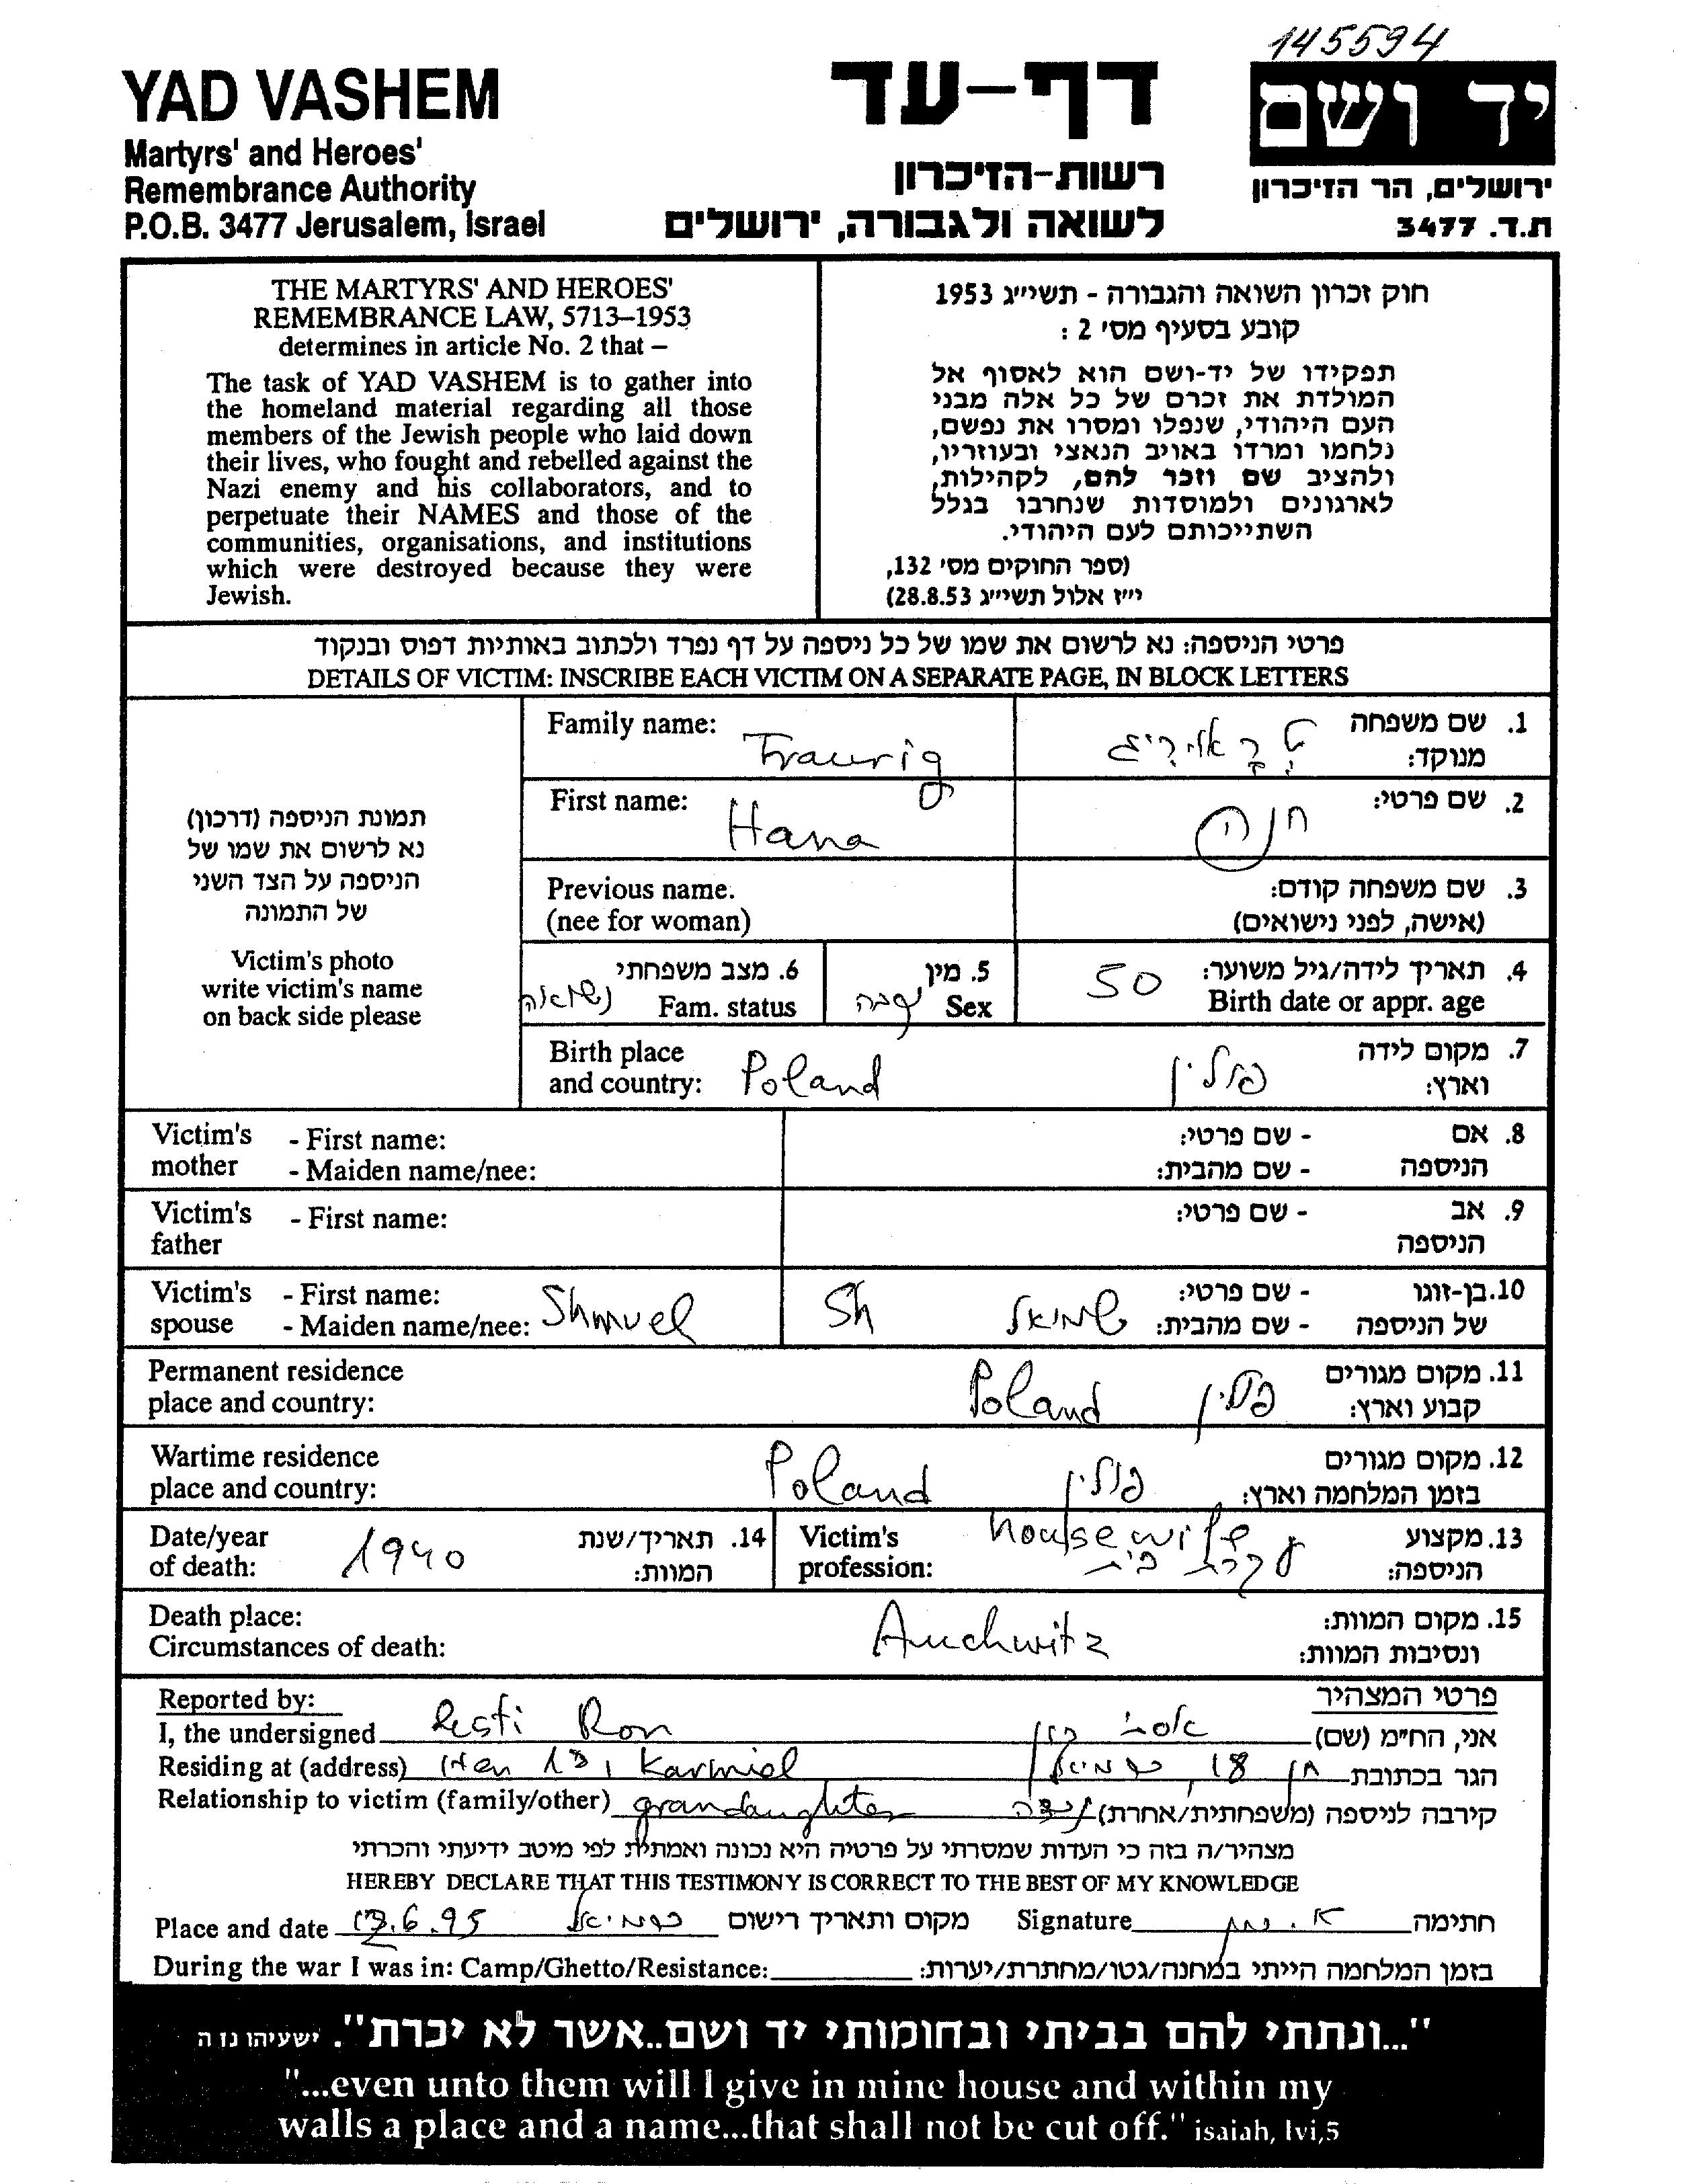 145594
YAD VASHEM
Martyrs' and Heroes'
Remembrance Authority
P.O.B. 3477 Jerusalem, Israel
דף-עד
רשות-הזיכרון
לשואה ולגבורה, ירושלים
יד ושם
ירושלים, הר הזיכרון
ת.ד. 3477
THE MARTYRS' AND HEROES'
REMEMBRANCE LAW, 5713–1953
determines in article No. 2 that –
The task of YAD VASHEM is to gather into
the homeland material regarding all those
members of the Jewish people who laid down
their lives, who fought and rebelled against the
Nazi enemy and his collaborators, and to
perpetuate their NAMES and those of the
communities, organisations, and institutions
which were destroyed because they were
Jewish.
חוק זכרון השואה והגבורה - תשי״ג 1953
קובע בסעיף מס' 2 :
תפקידו של יד-ושם הוא לאסוף אל
המולדת את זכרם של כל אלה מבני
העם היהודי, שנפלו ומסרו את נפשם,
נלחמו ומרדו באויב הנאצי ובעוזריו,
ולהציב שם וזכר להם, לקהילות,
לארגונים ולמוסדות שנחרבו בגלל
השתייכותם לעם היהודי.
(ספר החוקים מס' 132,
י״ז אלול תשי״ג 28.8.53)
פרטי הניספה: נא לרשום את שמו של כל ניספה על דף נפרד ולכתוב באותיות דפוס ובנקוד
DETAILS OF VICTIM: INSCRIBE EACH VICTIM ON A SEPARATE PAGE, IN BLOCK LETTERS
תמונת הניספה (דרכון)
נא לרשום את שמו של
הניספה על הצד השני
של התמונה
Victim's photo
write victim's name
on back side please
Family name: Traurig
1. שם משפחה
מנוקד: טראוריג
First name: Hana
2. שם פרטי: חנה
Previous name.
(nee for woman)
3. שם משפחה קודם:
(אישה, לפני נישואים)
6. מצב משפחתי נשואה
Fam. status
5. מין נקבה
Sex
4. תאריך לידה/גיל משוער: 50
Birth date or appr. age
Birth place
and country: Poland
7. מקום לידה
וארץ: פולין
Victim's mother - First name:
- Maiden name/nee:
8. אם הניספה - שם פרטי:
- שם מהבית:
Victim's father - First name:
9. אב הניספה - שם פרטי:
Victim's spouse - First name:
- Maiden name/nee: Shmuel
Sh
10. בן-זוגו של הניספה - שם פרטי:
- שם מהבית: שמואל
Permanent residence
place and country: Poland
11. מקום מגורים
קבוע וארץ: פולין
Wartime residence
place and country: Poland
12. מקום מגורים
בזמן המלחמה וארץ: פולין
Date/year
of death: 1940
14. תאריך/שנת
המוות:
Victim's
profession: housewife
13. מקצוע
הניספה: עקרת בית
Death place:
Circumstances of death: Auchwitz
15. מקום המוות:
ונסיבות המוות:
Reported by:
פרטי המצהיר
I, the undersigned Esti Ron
אני, החי״מ (שם) אסתי רון
Residing at (address) Hen 18, Karmiel
הגר בכתובת חן 18, כרמיאל
Relationship to victim (family/other) grandaughter
קירבה לניספה (משפחתית/אחרת) נכדה
מצהיר/ה בזה כי העדות שמסרתי על פרטיה היא נכונה ואמתית לפי מיטב ידיעתי והכרתי
HEREBY DECLARE THAT THIS TESTIMONY IS CORRECT TO THE BEST OF MY KNOWLEDGE
Place and date 13.6.95 כרמיאל מקום ותאריך רישום
Signature חתימה
During the war I was in: Camp/Ghetto/Resistance:
בזמן המלחמה הייתי במחנה/גטו/מחתרת/יערות:
"...ונתתי להם בביתי ובחומותי יד ושם..אשר לא יכרת". ישעיהו נו ה
"...even unto them will I give in mine house and within my
walls a place and a name...that shall not be cut off." isaiah, lvi,5